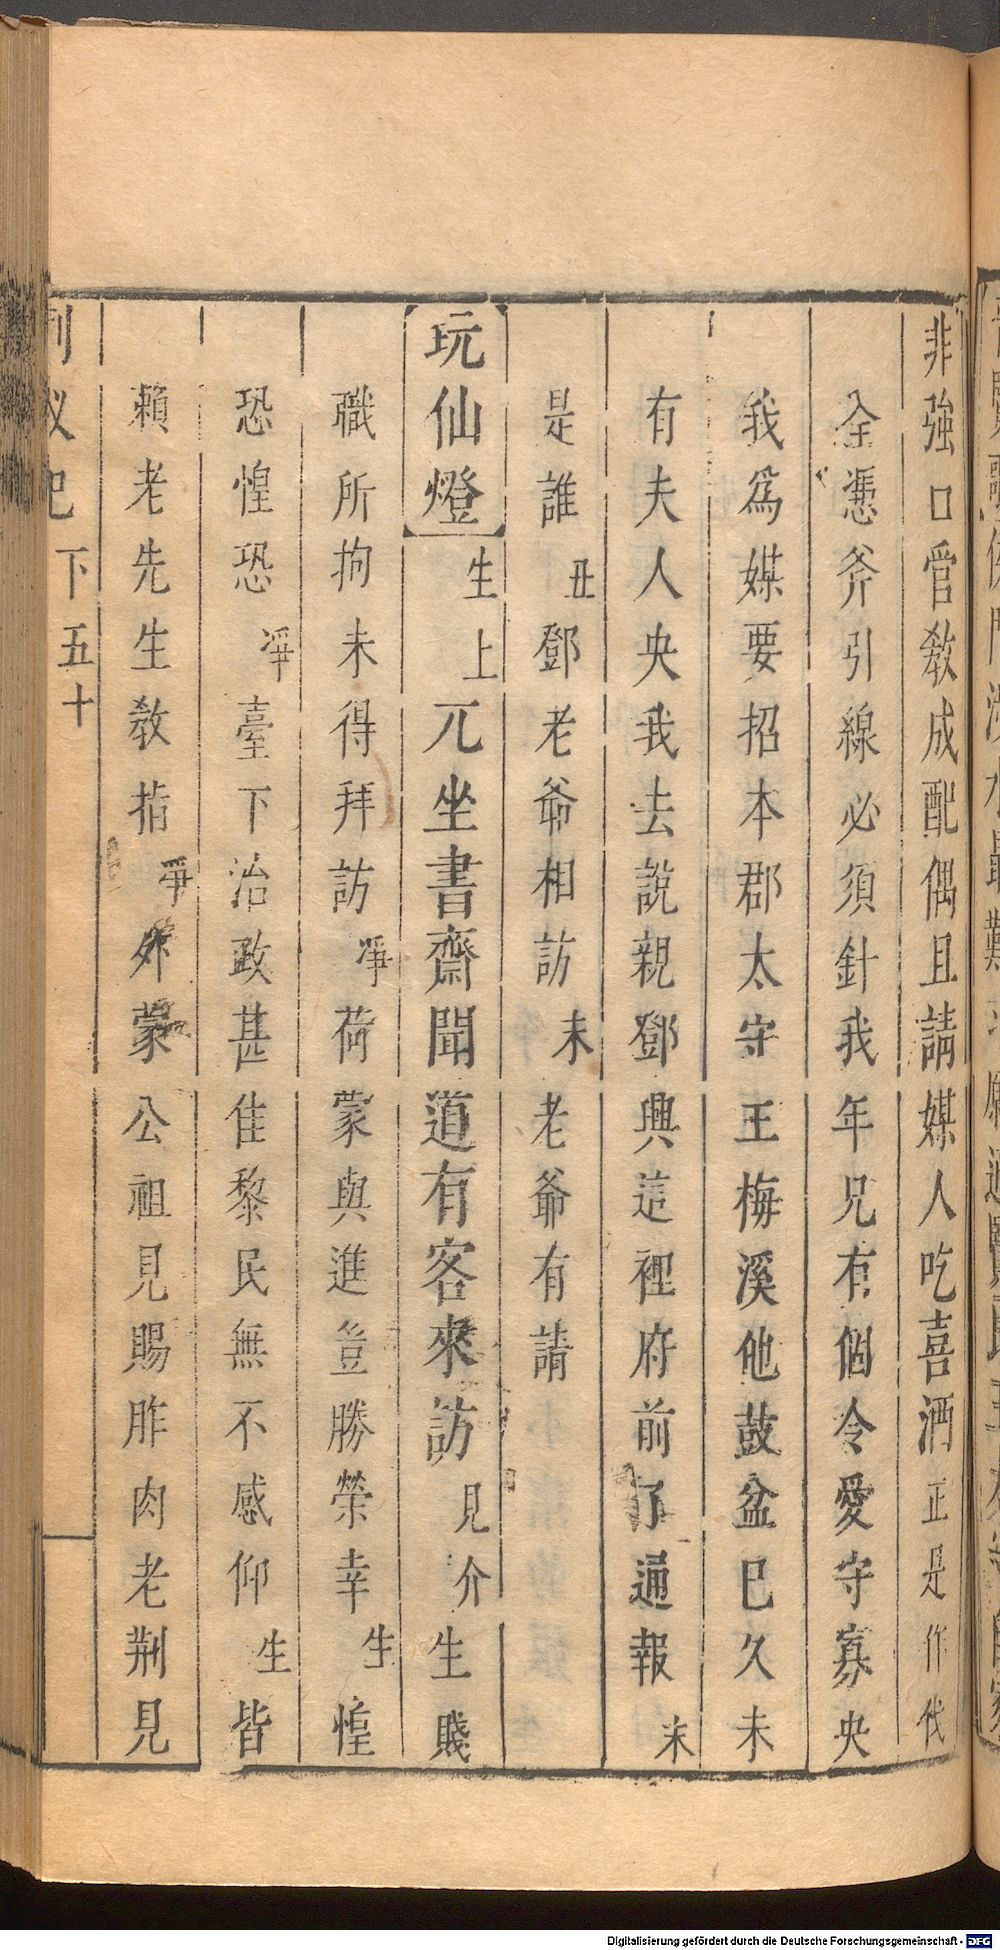 非強口官敎成配偶且請媒人吃喜酒正是作伐
全憑斧引線必須針我年兄有個令愛守寡央
我為媒要招本郡太守王梅溪他鼓盆已久未
有夫人央我去說親鄧興這裡府前了通報末
是誰丑鄧老爺相訪末老爺有請
玩仙燈生上兀坐書齋聞道有客來訪見介生賤
職所拘未得拜訪凈荷蒙與進豈勝榮幸生惶
恐惶恐凈臺下治政甚佳黎民無不感仰生皆
賴老先生敎指爭外蒙公祖見賜胙肉老荆見
下五十
Digitalisierung gefördert durch die Deutsche Forschungsgemeinschaft - DFG